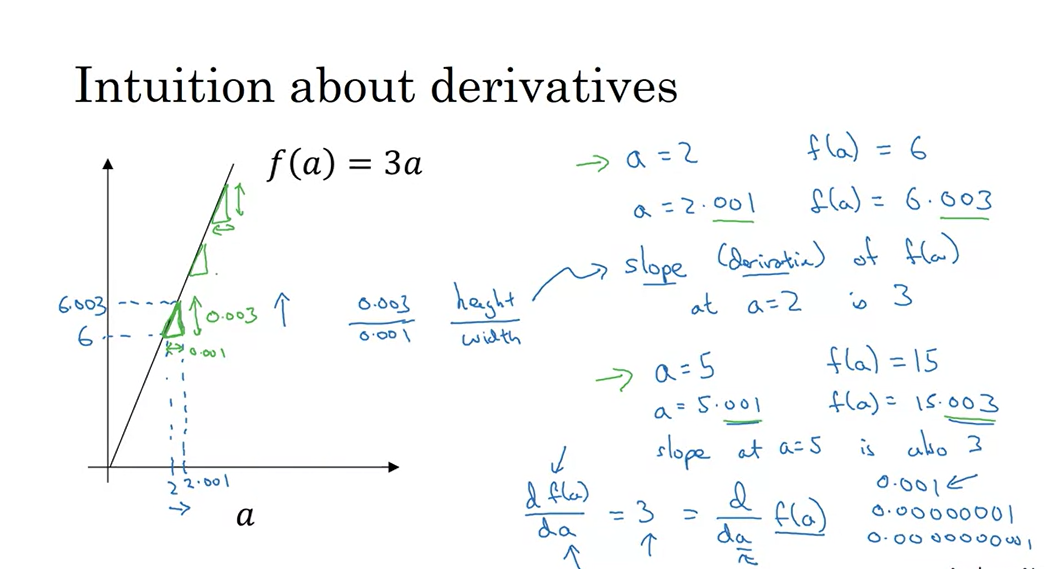 Intuition about derivatives
f(a) = 3a
6.003
6
0.003
0.001
2 2.001
a
0.003 / 0.001
height / width
a = 2 f(a) = 6
a = 2.001 f(a) = 6.003
slope (derivative) of f(a)
at a = 2 is 3
a = 5 f(a) = 15
a = 5.001 f(a) = 15.003
slope at a = 5 is also 3
d f(a) / da = 3 = d / da f(a)
0.001
0.00000001
0.0000000001